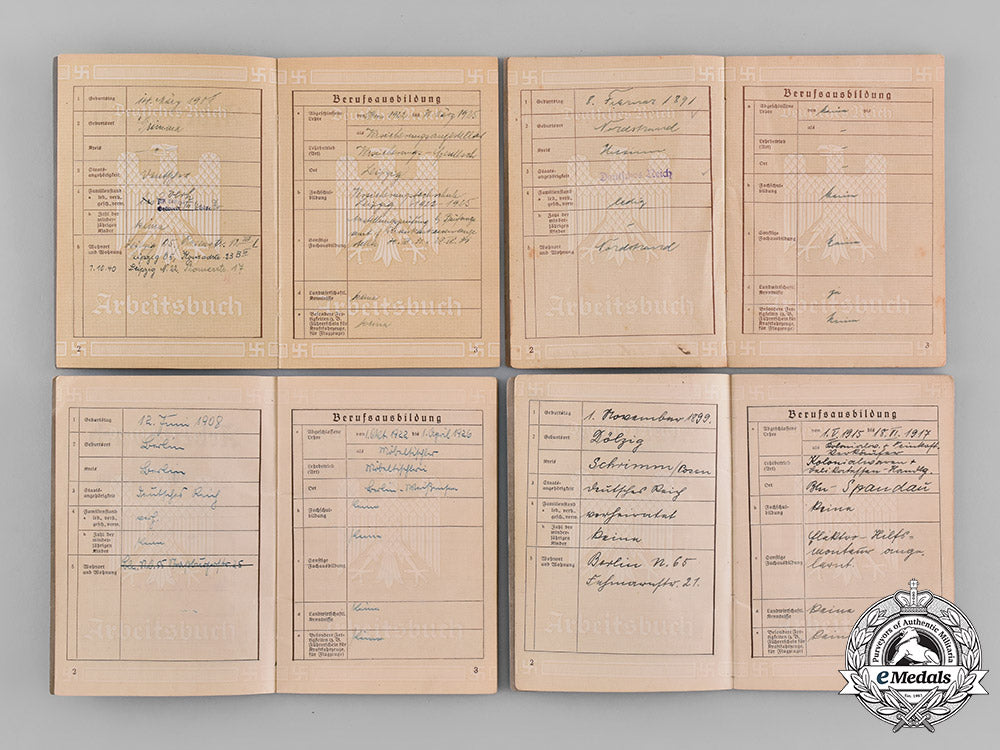 1 Geburtstag
2 Geburtsort
Kreis
3 Staats-
angehörigkeit Deutsches
4 Familienstand
a led., verh.
gesch., verw.
b Zahl der
minder-
jährigen
Kinder keine
5 Wohnort
und Wohnung
7.10.40 Leipzig N 22
Deutsches Reich
Arbeitsbuch
2
Berufsausbildung
a Abgeschlossene
Lehre
als Versicherungsangestellter
Lehrbetrieb
(Art)
Ort Leipzig
b Fachschul-
bildung
Leipzig 1922-1925
c Sonstige
Fachausbildung
d Landwirtschaftl.
Kenntnisse keine
e Besondere Fer-
tigkeiten (z. B.
Führerschein für
Kraftfahrzeuge,
für Flugzeuge) keine
Arbeitsbuch
3
1 Geburtstag 8. Februar 1891
2 Geburtsort Nordstrand
Kreis Husum
3 Staats-
angehörigkeit Deutsches Reich
4 Familienstand
a led., verh.
gesch., verw. ledig
b Zahl der
minder-
jährigen
Kinder -
5 Wohnort
und Wohnung Nordstrand
Arbeitsbuch
2
Berufsausbildung
a Abgeschlossene
Lehre von keine bis
als -
Lehrbetrieb
(Art) -
Ort -
b Fachschul-
bildung keine
c Sonstige
Fachausbildung keine
d Landwirtschaftl.
Kenntnisse ja
e Besondere Fer-
tigkeiten (z. B.
Führerschein für
Kraftfahrzeuge,
für Flugzeuge) keine
3
1 Geburtstag 12. Juni 1908
2 Geburtsort Berlin
Kreis Berlin
3 Staats-
angehörigkeit Deutsches Reich
4 Familienstand
a led., verh.
gesch., verw. verh.
b Zahl der
minder-
jährigen
Kinder keine
5 Wohnort
und Wohnung
Arbeitsbuch
2
Berufsausbildung
a Abgeschlossene
Lehre 1. Okt 1922 bis 1. April 1926
als Möbeltischler
Lehrbetrieb
(Art) Möbeltischlerei
Ort Berlin-Weißensee
b Fachschul-
bildung keine
keine
c Sonstige
Fachausbildung
d Landwirtschaftl.
Kenntnisse keine
e Besondere Fer-
tigkeiten (z. B.
Führerschein für
Kraftfahrzeuge,
für Flugzeuge) keine
Arbeitsbuch
3
1 Geburtstag 1. November 1899.
2 Geburtsort Dölzig
Kreis Schrimm/Posen
3 Staats-
angehörigkeit deutsches Reich
4 Familienstand
a led., verh.
gesch., verw. verheiratet
b Zahl der
minder-
jährigen
Kinder Keine
5 Wohnort
und Wohnung Berlin N. 65
Fehmarnstr. 21.
Arbeitsbuch
2
Berufsausbildung
a Abgeschlossene
Lehre von 1.IV.1915 bis VI. 1917
als Kolonialw. + Feinkost-
Verkäufer
Lehrbetrieb
(Art) Kolonialwaren +
Delikatessen-Handlg.
Ort Bln-Spandau
b Fachschul-
bildung Keine
c Sonstige
Fachausbildung Elektro-Hilfs-
monteur ange-
lernt.
d Landwirtschaftl.
Kenntnisse Keine
e Besondere Fer-
tigkeiten (z. B.
Führerschein für
Kraftfahrzeuge,
für Flugzeuge)
Purveyors of Authentic Militaria
eMedals